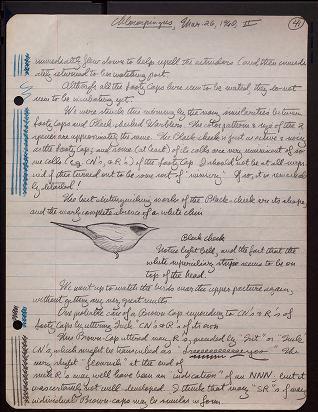 Chlorospingus, Mar. 26, 1960, II
(4)
immediately flew down to help repel the intruders (and then immedi-
ately returned to her watching post.
Although all the Sooty Caps here seem to be mated, they do not
seem to be incubating yet.
We were struck this morning by the many similarities between
Sooty Caps and Black-cheeked Warblers. The color pattern & size of the 2
species are approximately the same. The Black-cheek is just as active & noisy
as the Sooty Caps; and some (at least) of its calls are very reminiscent of some
calls (e.g. CN's, & R's) of the Sooty Cap. I should not be at all surpri-
sed if this turned out to be some sort of "mimicry". If so, it is remarkab-
ly detailed!
The best distinguishing marks of the Black-cheek are its shape,
and the nearly complete absence of a white chin
Black cheek
Notice light bill, and the fact that the
white superciliary stripe seems to be on
top of the head.
We went up to watch the birds near the upper pasture again,
without getting any very great results
One probable case of a Brown Cap responding to CN's & R's of
Sooty Caps by uttering "Tuck" CN's & R's of its own
This Brown Cap uttered many R's, preceded by "Tsit" or "Tuck"
CN's, which might be transcribed as
very slight "flourish" at the end of
such R's may well have been an "indication" of an NNN, but it
was certainly not well developed. I think that many "SR's" of
individual Brown Caps may be similar in form.